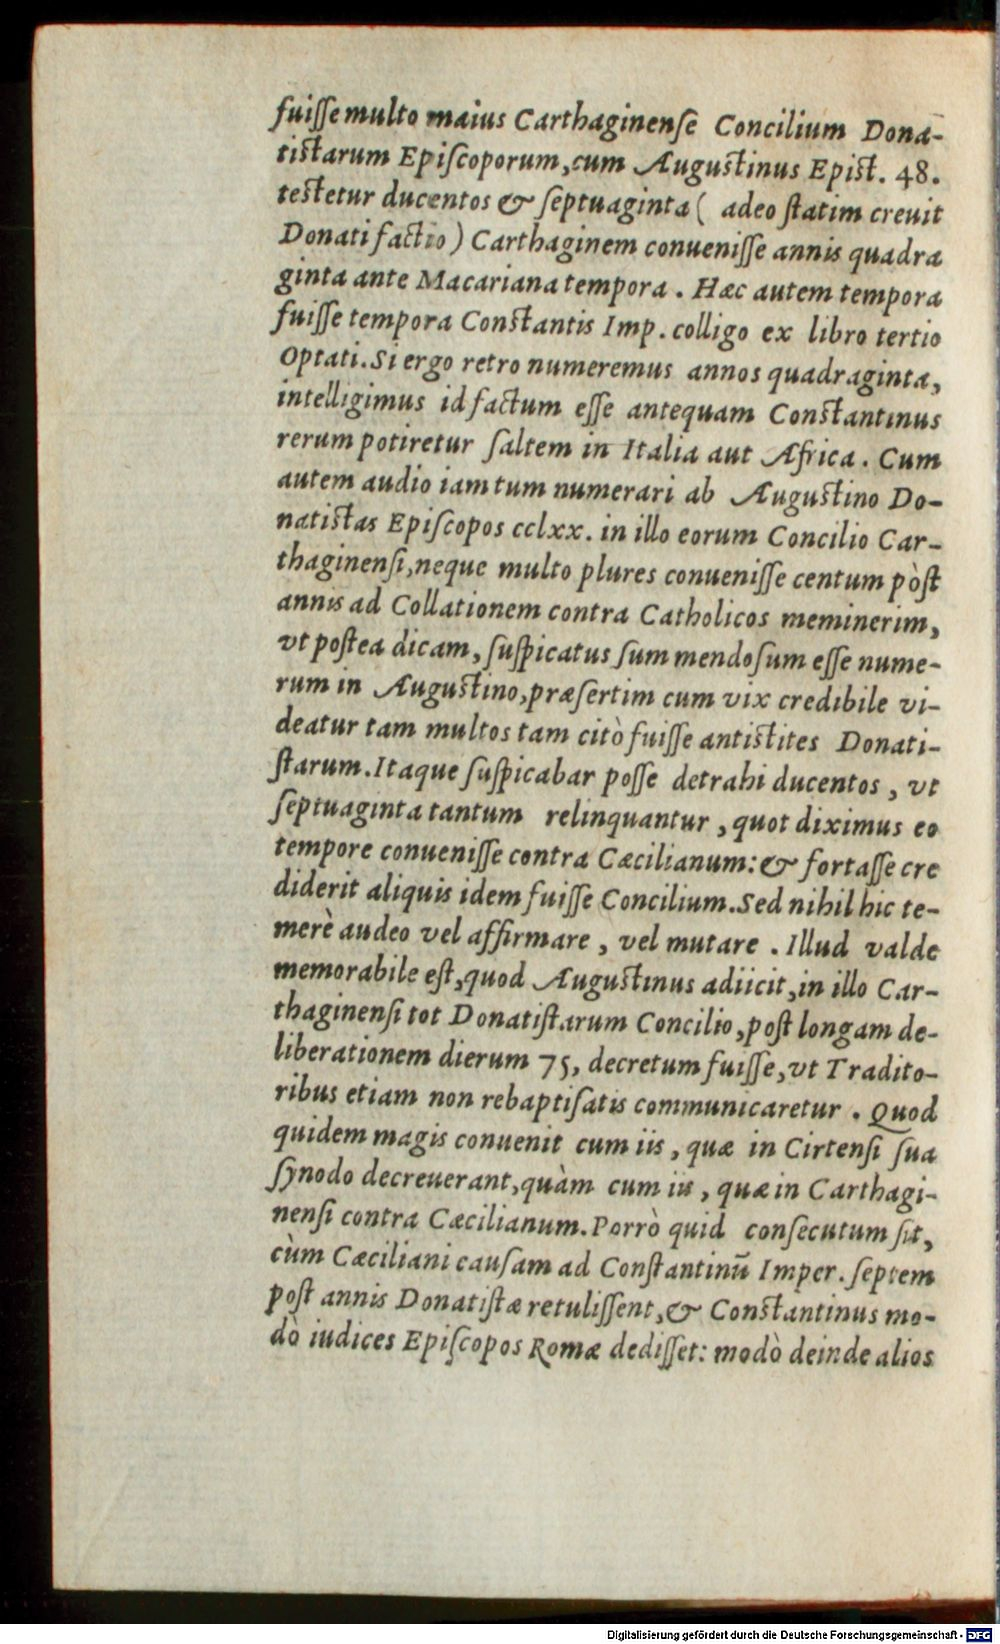 fuiſſe multo maius Carthaginenſe Concilium Dona-
tiſtarum Epiſcoporum, cum Auguſtinus Epiſt. 48.
teſtetur ducentos & ſeptuaginta ( adeo ſtatim creuit
Donati factio ) Carthaginem conueniſſe annis quadra
ginta ante Macariana tempora . Hæc autem tempora
fuiſſe tempora Conſtantis Imp. colligo ex libro tertio
Optati. Si ergo retro numeremus annos quadraginta,
intelligimus id factum eſſe antequam Conſtantinus
rerum potiretur ſaltem in Italia aut Africa . Cum
autem audio iam tum numerari ab Auguſtino Do-
natiſtas Epiſcopos cclxx. in illo eorum Concilio Car-
thaginenſi, neque multo plures conueniſſe centum pòſt
annis ad Collationem contra Catholicos meminerim,
vt poſtea dicam, ſuſpicatus ſum mendoſum eſſe nume-
rum in Auguſtino, præſertim cum vix credibile vi-
deatur tam multos tam citò fuiſſe antiſtites Donati-
ſtarum. Itaque ſuſpicabar poſſe detrahi ducentos , vt
ſeptuaginta tantum relinquantur , quot diximus eo
tempore conueniſſe contra Cæcilianum: & fortaſſe cre
diderit aliquis idem fuiſſe Concilium. Sed nihil hic te-
merè audeo vel affirmare , vel mutare . Illud valde
memorabile eſt, quod Auguſtinus adiicit, in illo Car-
thaginenſi tot Donatiſtarum Concilio, poſt longam de-
liberationem dierum 75, decretum fuiſſe, vt Tradito-
ribus etiam non rebaptiſatis communicaretur . Quod
quidem magis conuenit cum iis , quæ in Cirtenſi ſua
ſynodo decreuerant, quàm cum iis , quæ in Carthagi-
nenſi contra Cæcilianum. Porrò quid conſecutum ſit,
cùm Cæciliani cauſam ad Conſtantinū Imper. ſeptem
poſt annis Donatiſtæ retuliſſent, & Conſtantinus mo-
dò iudices Epiſcopos Romæ dediſſet: modò deinde alios
Digitalisierung gefördert durch die Deutsche Forschungsgemeinschaft - DFG